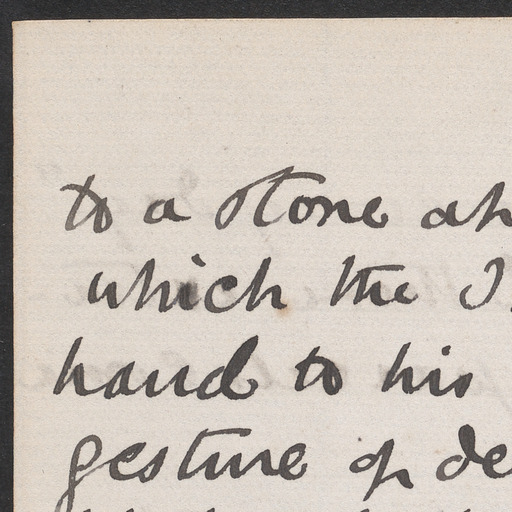 to a stone
which the
hand to his
gesture of